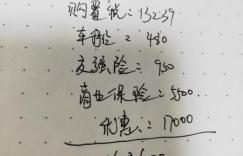 购置税：13239
车船：480
交强险：950
商业保险：5500
优惠：17000